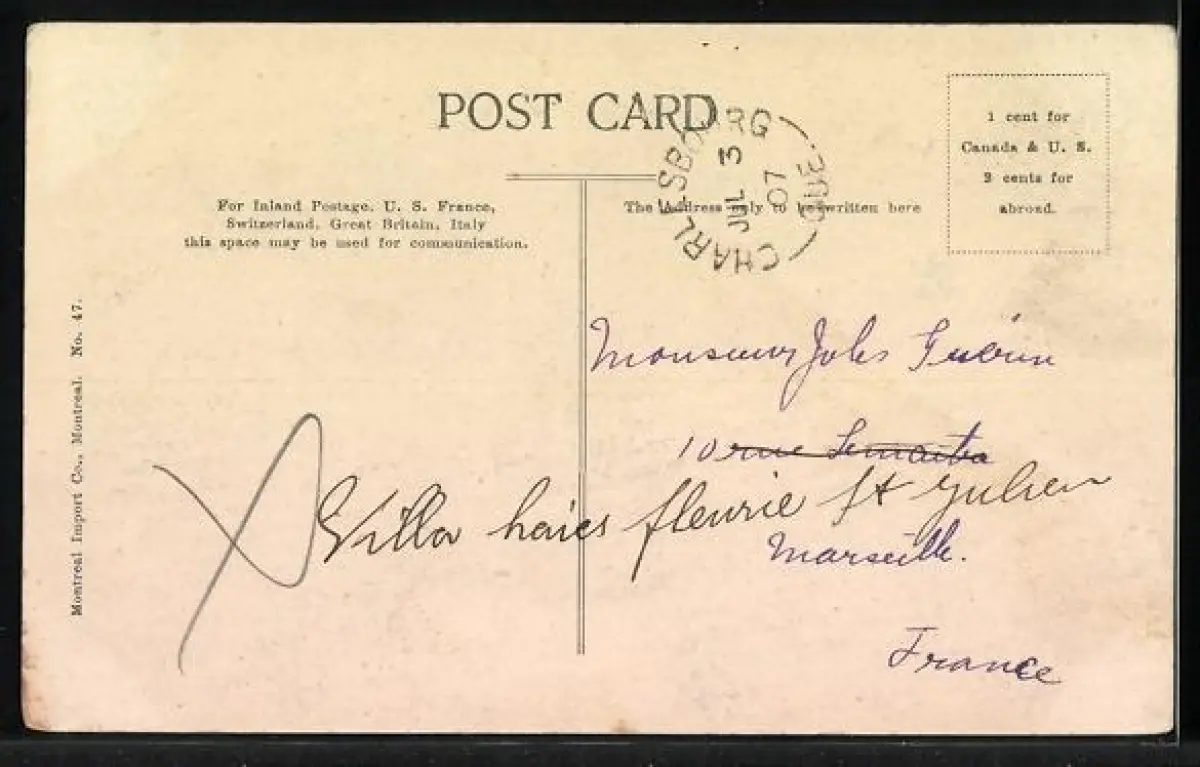 POST CARD
CHARLESBOURG
QUE.
JUL 3
07
1 cent for
Canada & U. S.
2 cents for
abroad.
For Inland Postage, U. S. France,
Switzerland, Great Britain, Italy
this space may be used for communication.
The Address only to be written here
Montreal Import Co., Montreal. No. 47.
Monsieur Jules
10 rue
Villa haies fleurie St Julien
Marseille.
France